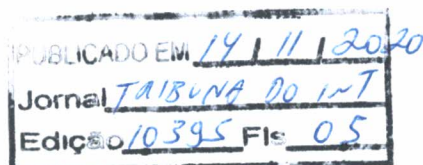 PUBLICADO EM 14 / 11 / 2020
Jornal TRIBUNA DO INT
Edição 10395 Fls 05